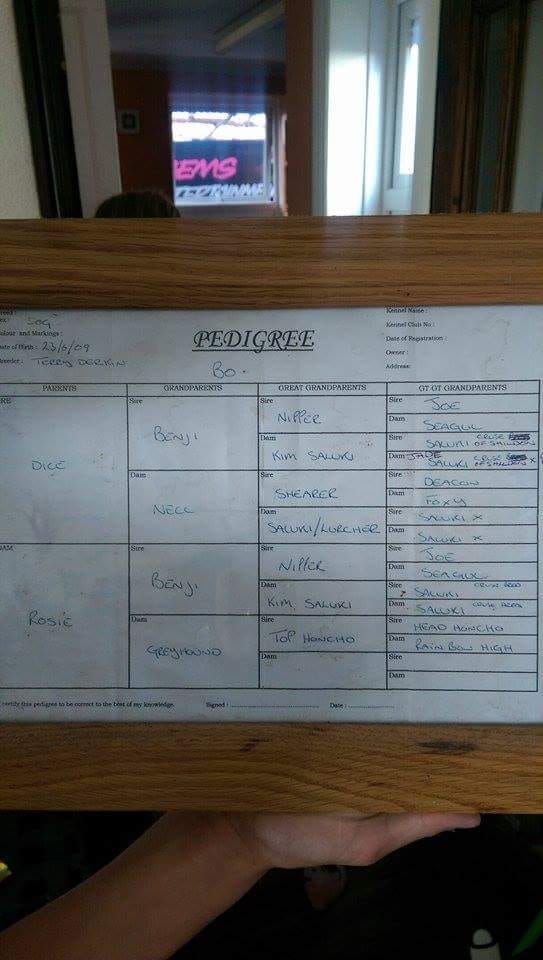 EMS
PEDIGREE
BO.
DOG
Colour and Markings:
Date of Birth: 23/6/09
Breeder: TERRY DERKIN
Kennel Name:
Kennel Club No:
Date of Registration:
Owner:
Address:
PARENTS
GRANDPARENTS
GREAT GRANDPARENTS
GT GT GRANDPARENTS
DICE
DAM
ROSIE
Sire
BENJI
Dam
NELL
Sire
BENJI
Dam
GREYHOUND
Sire
NIPPER
Dam
KIM SALUKI
Sire
SHEARER
Dam
SALUKI/LURCHER
Sire
NIPPER
Dam
KIM, SALUKI
Sire
TOP HONCHO
Dam
Sire JOE
Dam SEAGUL
Sire SALUKI
Dam JADE SALUKI
Sire DEACON
Dam FOXY
Sire SALUKI X
Dam SALUKI X
Sire JOE
Dam SEAGUL
Sire SALUKI
Dam SALUKI
Sire HEAD HONCHO
Dam RAINBOW HIGH
Sire
Dam
certify this pedigree to be correct to the best of my knowledge.
Signed:
Date: